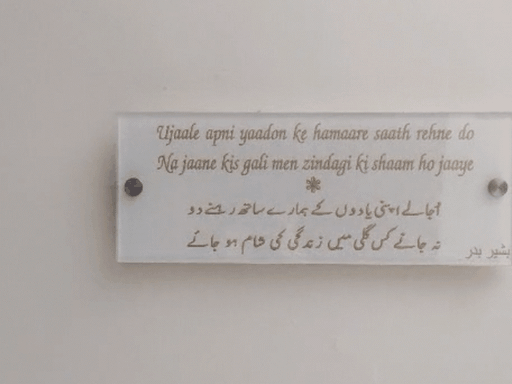 Ujaale apni yaadon ke hamaare saath rehne do
Na jaane kis gali men zindagi ki shaam ho jaaye
اجالے اپنی یادوں کے ہمارے ساتھ رہنے دو
نہ جانے کس گلی میں زندگی کی شام ہو جائے
بشیر بدر